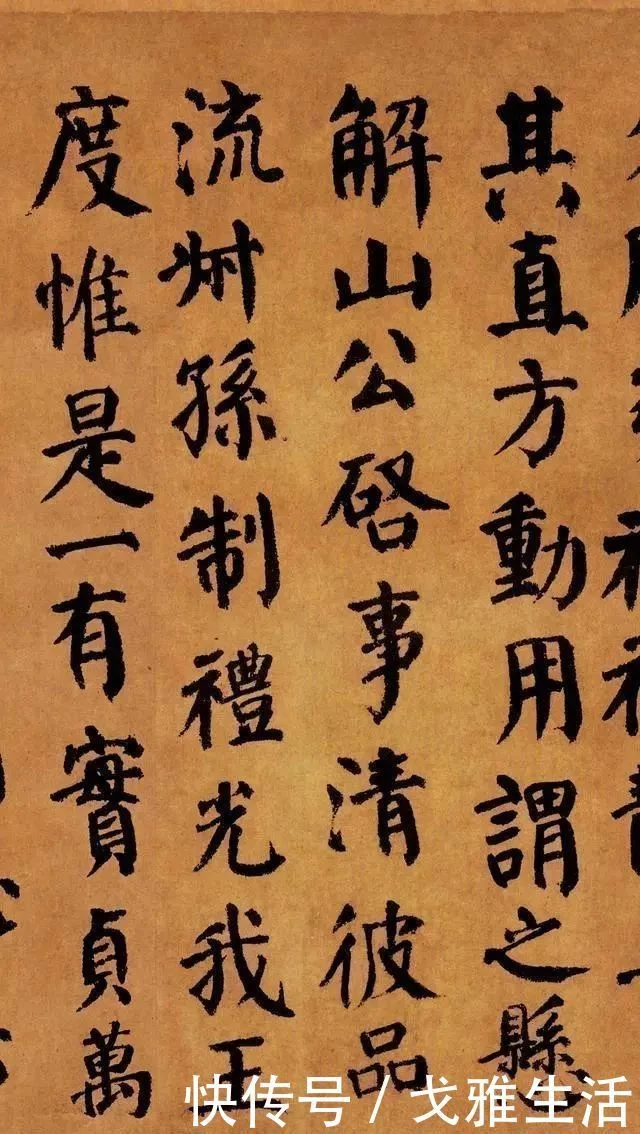 其直方動用謂之懸
解山公啓事清彼品
流叔孫制禮光我王
度惟是一有實貞萬
快传号 / 戈雅生活